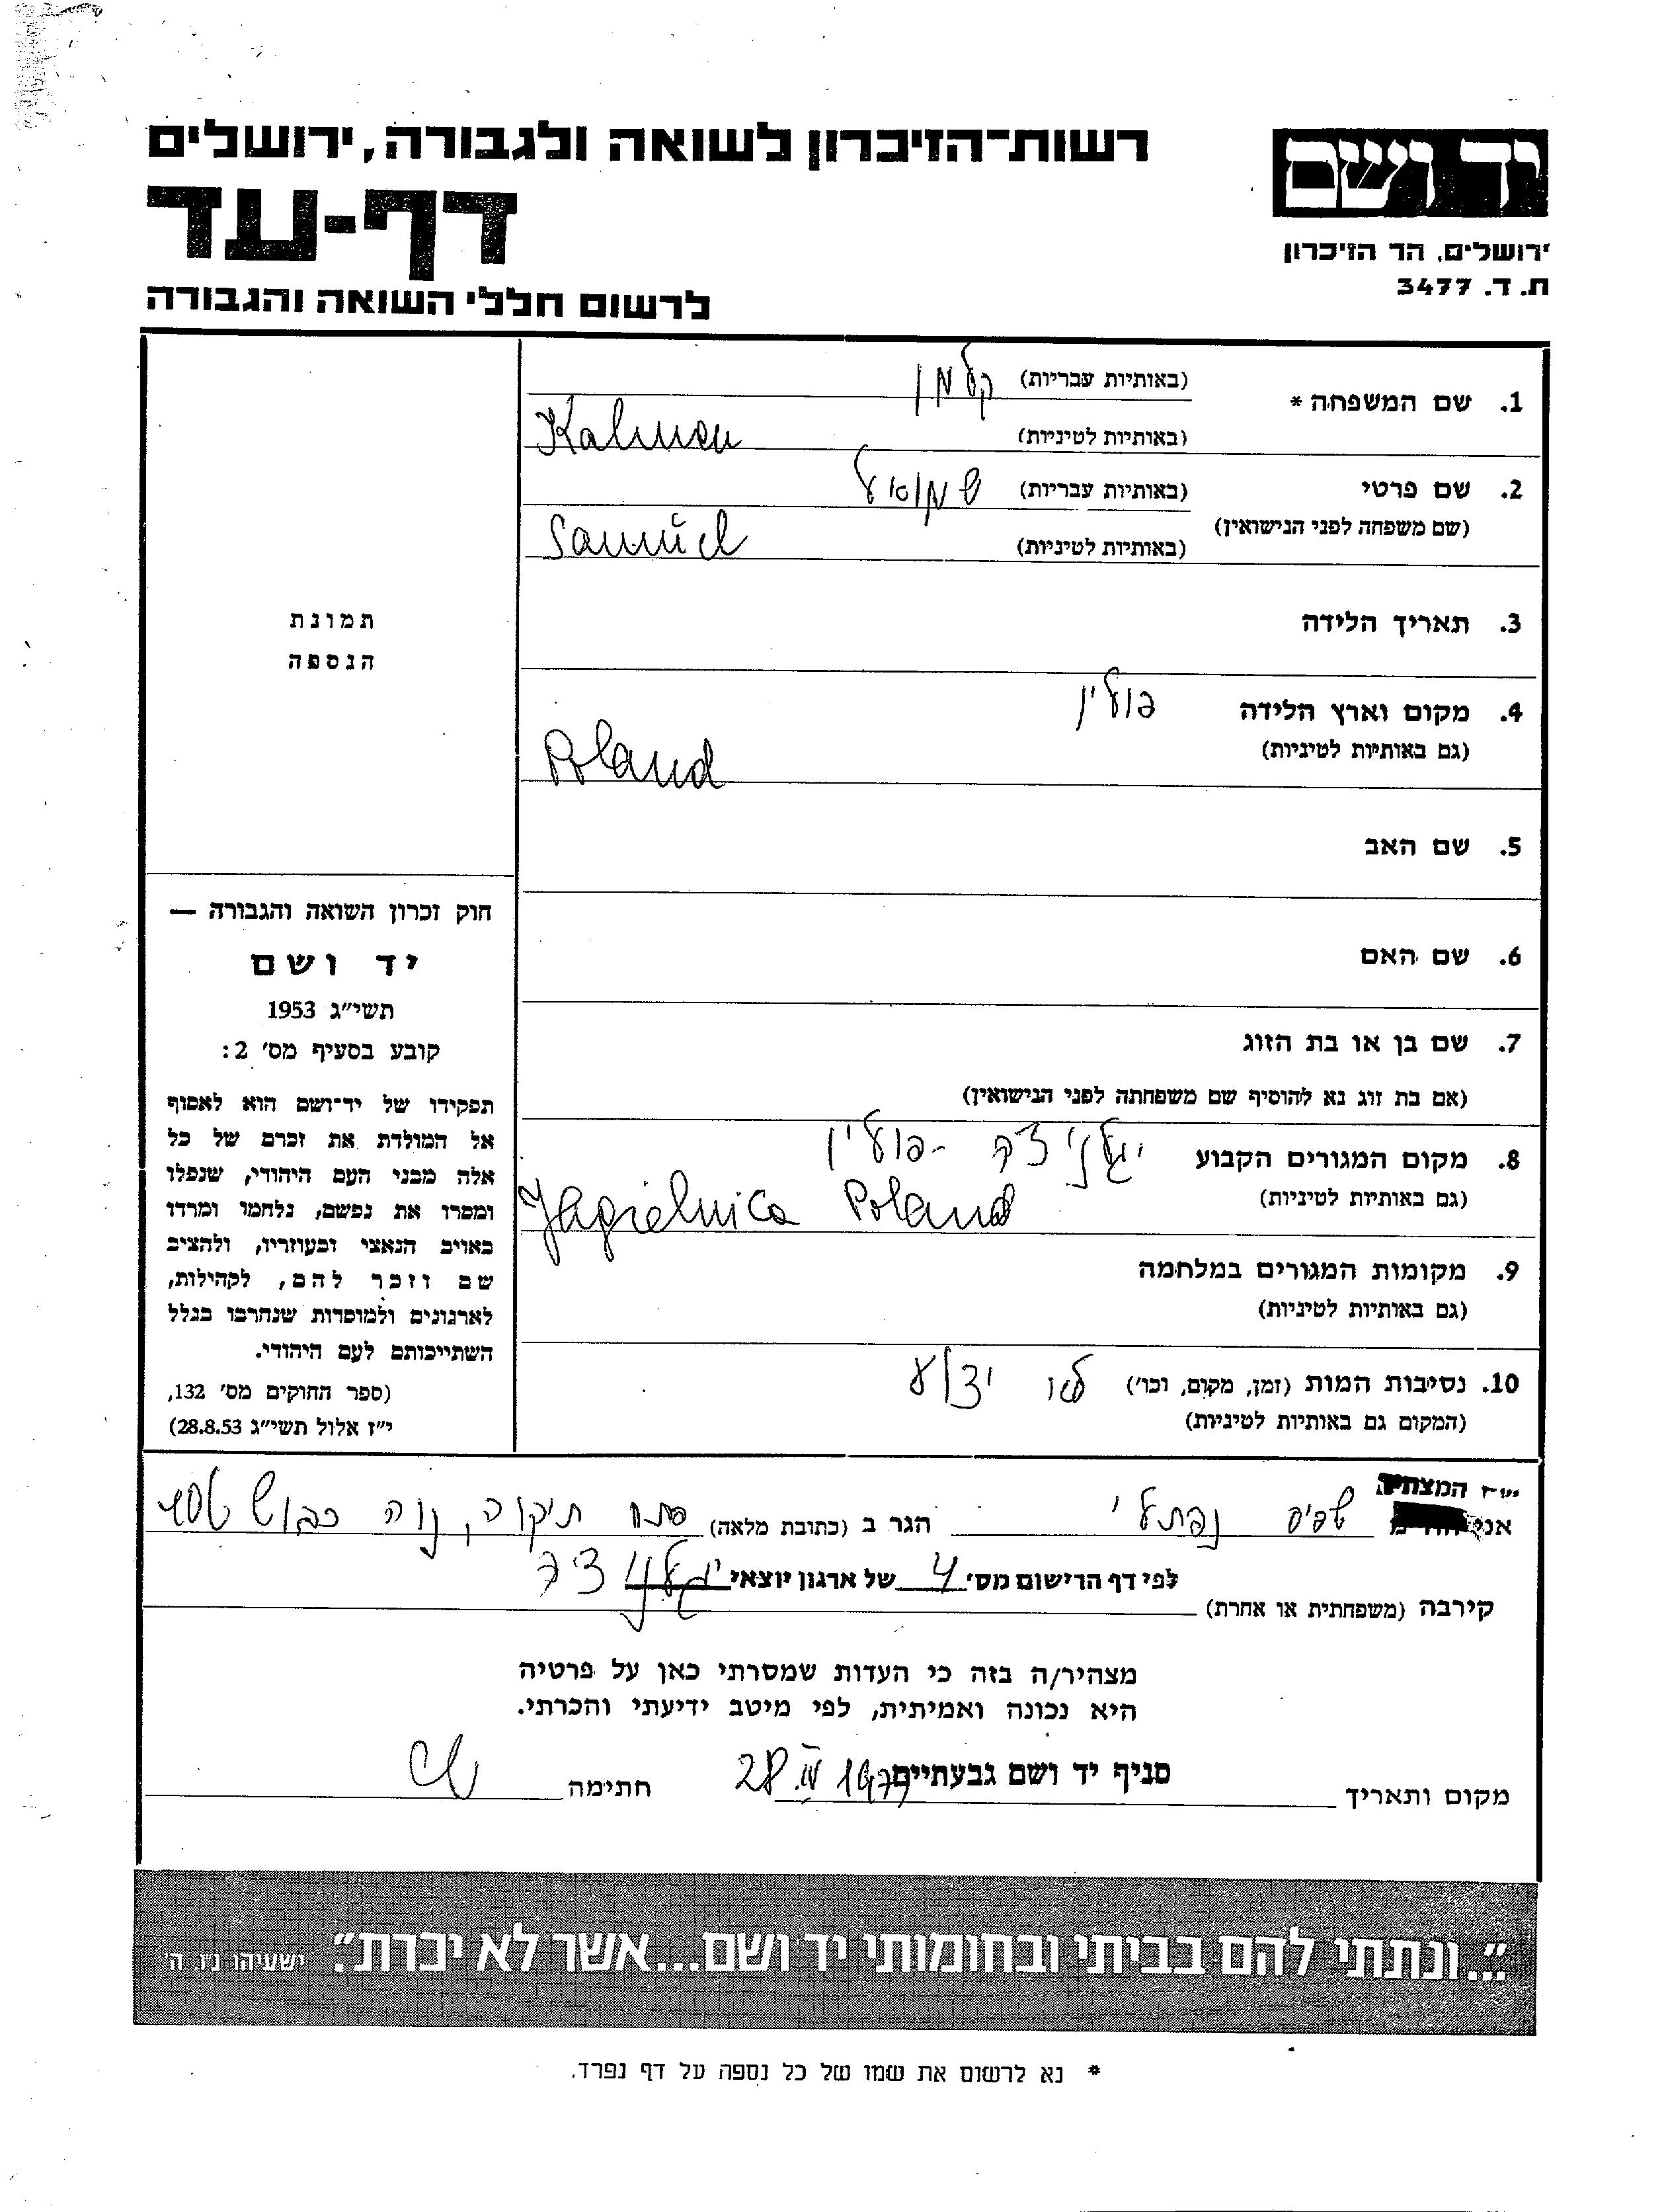 רשות־הזיכרון לשואה ולגבורה, ירושלים
יד ושם
דף-עד
ירושלים, הר הזיכרון
ת. ד. 3477
לרשום חללי השואה והגבורה
1. שם המשפחה *
(באותיות עבריות) קלמן
(באותיות לטיניות) Kalman
2. שם פרטי
(באותיות עבריות) שמואל
(שם משפחה לפני הנישואין)
(באותיות לטיניות) Samuel
3. תאריך הלידה
4. מקום וארץ הלידה פולין
(גם באותיות לטיניות)
Poland
5. שם האב
6. שם האם
7. שם בן או בת הזוג
(אם בת זוג נא להוסיף שם משפחתה לפני הנישואין)
8. מקום המגורים הקבוע יגלניצה - פולין
(גם באותיות לטיניות) Jagielnica Poland
9. מקומות המגורים במלחמה
(גם באותיות לטיניות)
10. נסיבות המות (זמן, מקום, וכו') לא ידוע
(המקום גם באותיות לטיניות)
תמונת
הנספה
חוק זכרון השואה והגבורה —
יד ושם
תשי"ג 1953
קובע בסעיף מס' 2:
תפקידו של יד־ושם הוא לאסוף
אל המולדת את זכרם של כל
אלה מבני העם היהודי, שנפלו
ומסרו את נפשם, נלחמו ומרדו
באויב הנאצי ובעוזריו, ולהציב
שם וזכר להם, לקהילות,
לארגונים ולמוסדות שנחרבו בגלל
השתייכותם לעם היהודי.
(ספר החוקים מס' 132,
י"ז אלול תשי"ג 28.8.53)
המצהיר
אני נפתלי הגר ב (כתובת מלאה) פתח תיקוה, נוה
לפי דף הרישום מס' 4 של ארגון יוצאי יגלניצה
קירבה (משפחתית או אחרת)
מצהיר/ה בזה כי העדות שמסרתי כאן על פרטיה
היא נכונה ואמיתית, לפי מיטב ידיעתי והכרתי.
מקום ותאריך סניף יד ושם גבעתיים 28 IV 1977 חתימה
"...ונתתי להם בביתי ובחומותי יד ושם...אשר לא יכרת". ישעיהו נ"ו, ה'
* נא לרשום את שמו של כל נספה על דף נפרד.